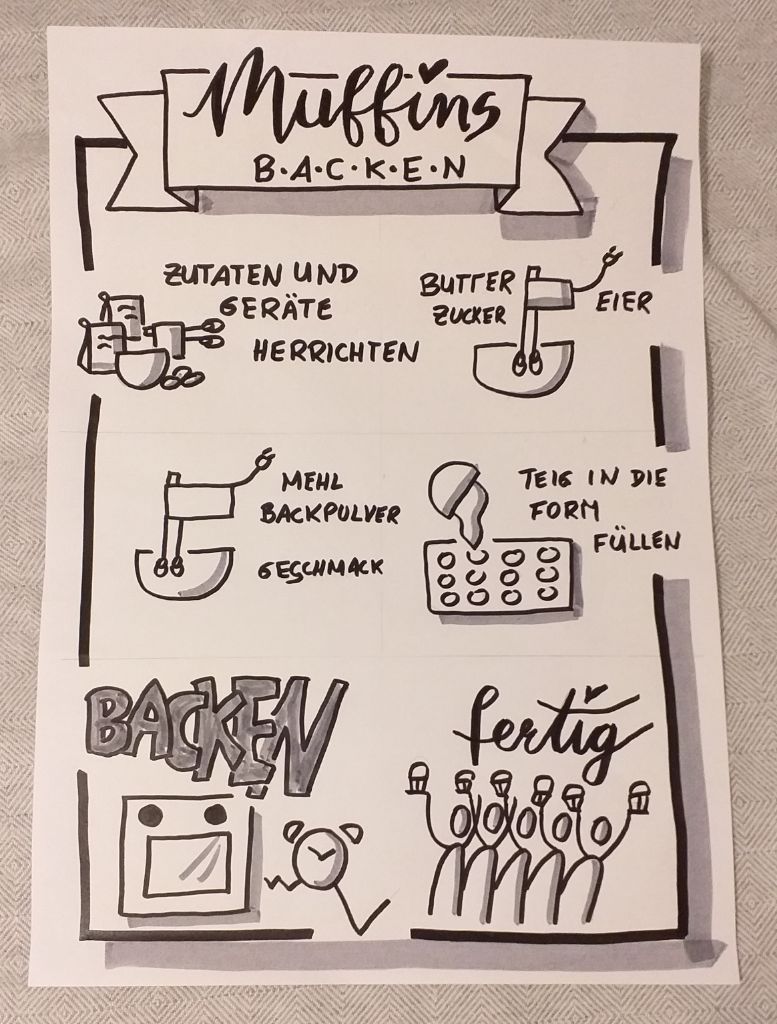 Muffins
B·A·C·K·E·N
ZUTATEN UND
GERÄTE
HERRICHTEN
BUTTER
ZUCKER
EIER
MEHL
BACKPULVER
GESCHMACK
TEIG IN DIE
FORM
FÜLLEN
BACKEN
fertig